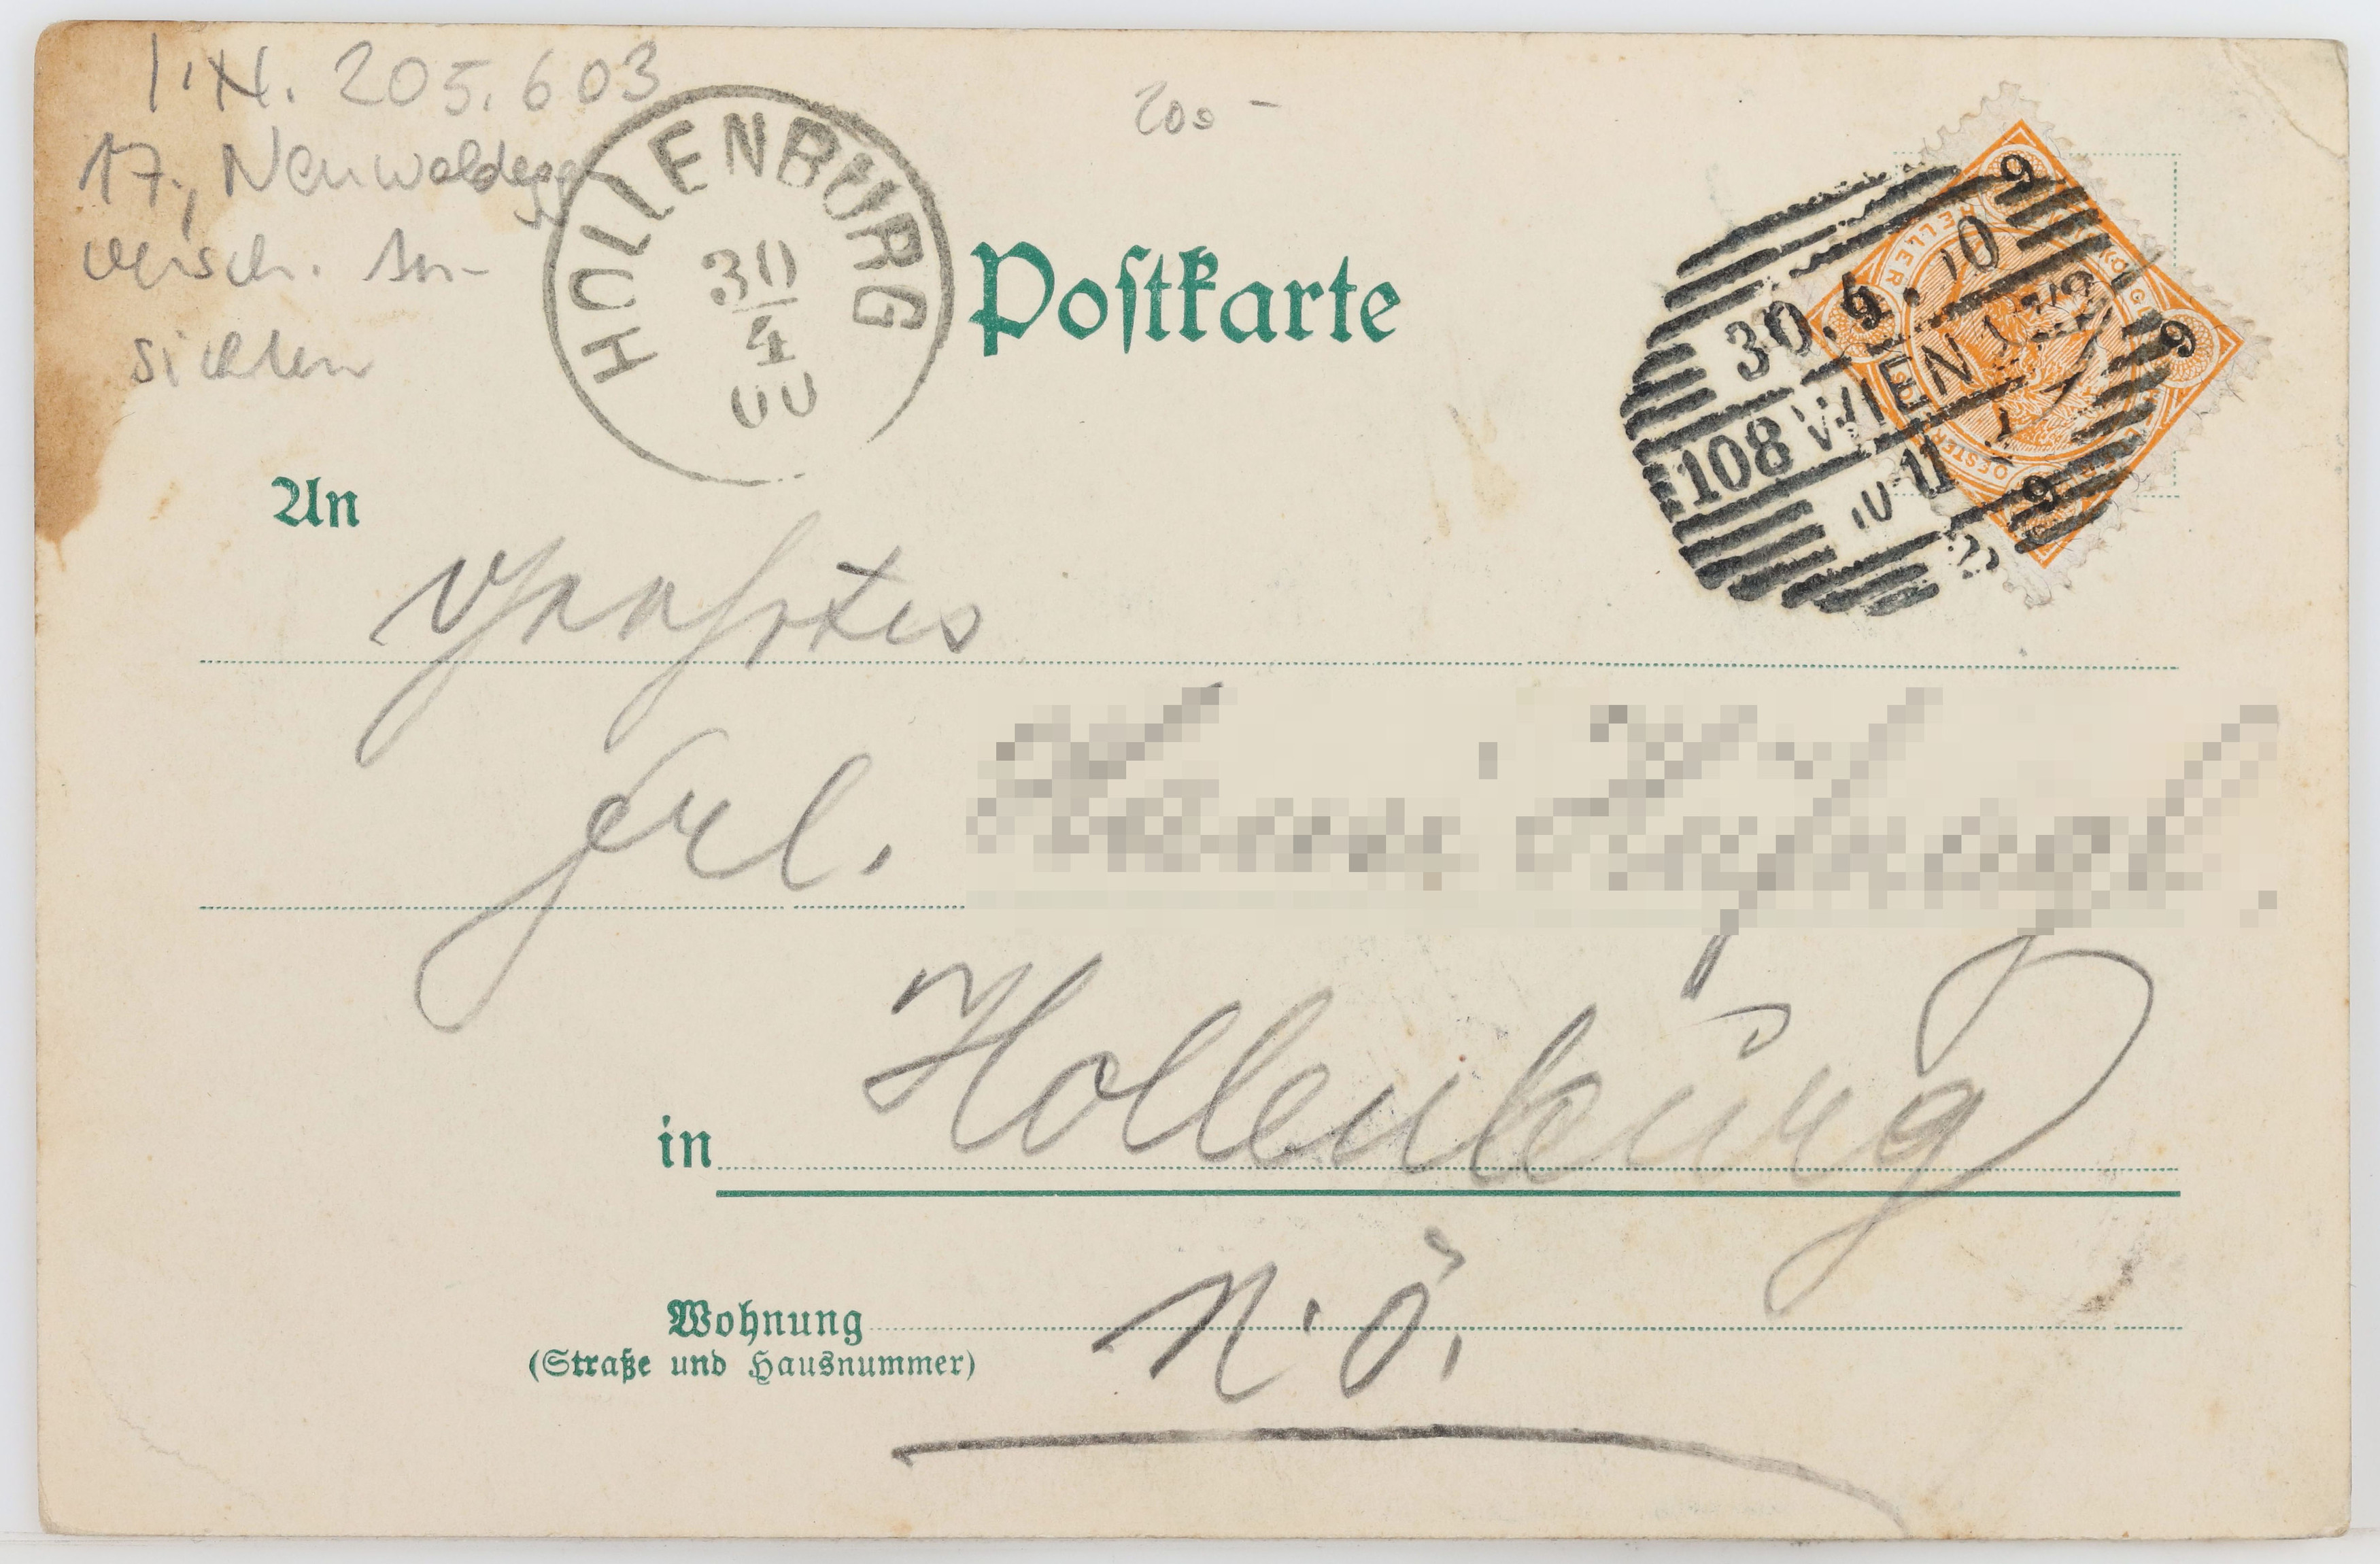 I.N. 205.603
17., Neuwaldegg
versch. An-
sichten
200 -
HOLLENBURG
30
4
00
Postkarte
30.4.00
108 WIEN
HELLER
6
6
6
An
Verehrtes
Frl.
in Hollenburg
Wohnung N.Ö.
(Straße und Hausnummer)